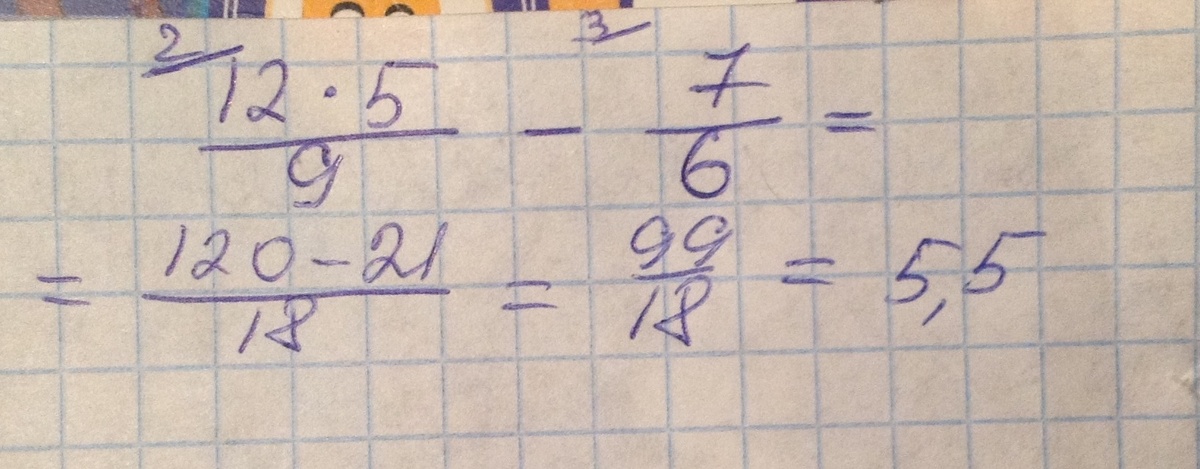 2/ 12 · 5 / 9 - 3/ 7 / 6 =
= 120 - 21 / 18 = 99 / 18 = 5,5